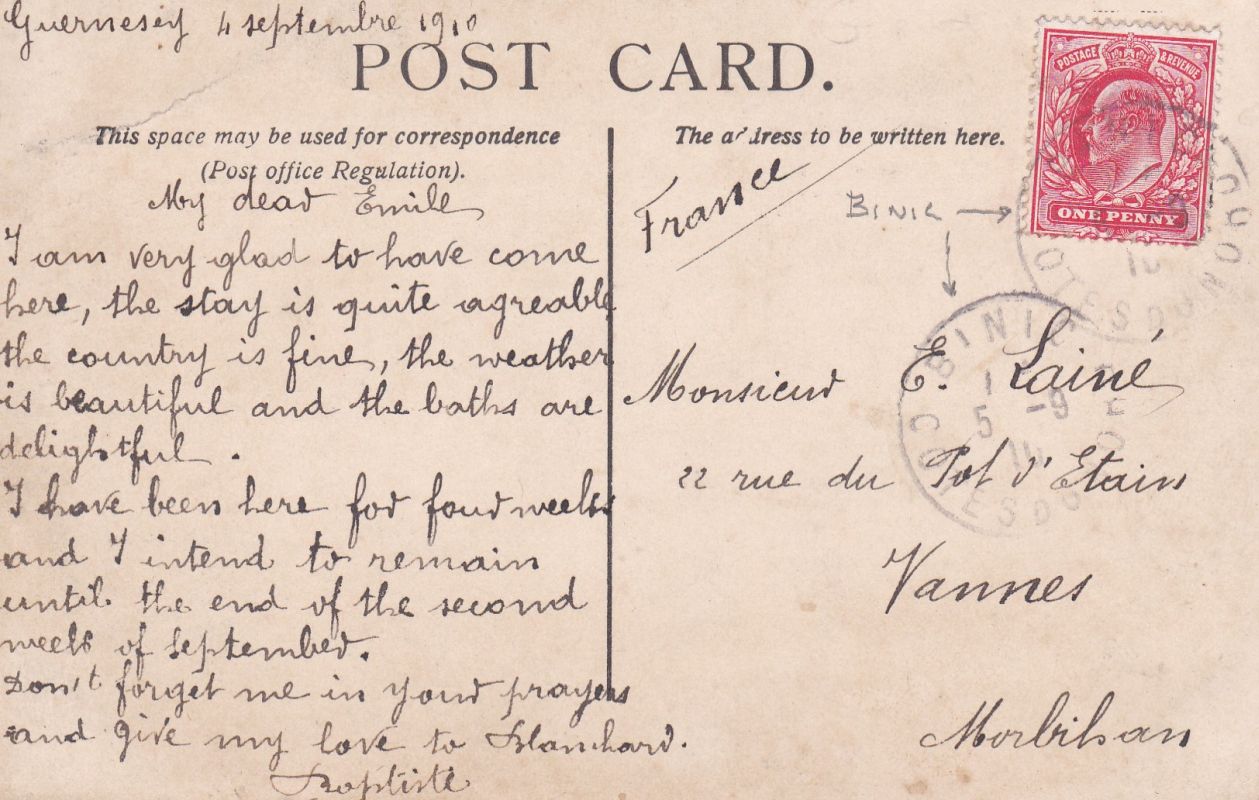 Guernesey 4 septembre 1910
POST CARD.
This space may be used for correspondence
(Post office Regulation).
My dear Emile
I am very glad to have come
here, the stay is quite agreable
the country is fine, the weather
is beautiful and the baths are
delightful.
I have been here for four weeks
and I intend to remain
until the end of the second
week of september.
Don't forget me in your prayers
and give my love to Blanchard.
Baptiste
The address to be written here.
France
POSTAGE & REVENUE
ONE PENNY
BINIC
Monsieur E. Lainé
22 rue du Pot d'Etain
Vannes
Morbihan
BINIC
5 -9
10
COTES DU NORD
10
COTES DU NORD